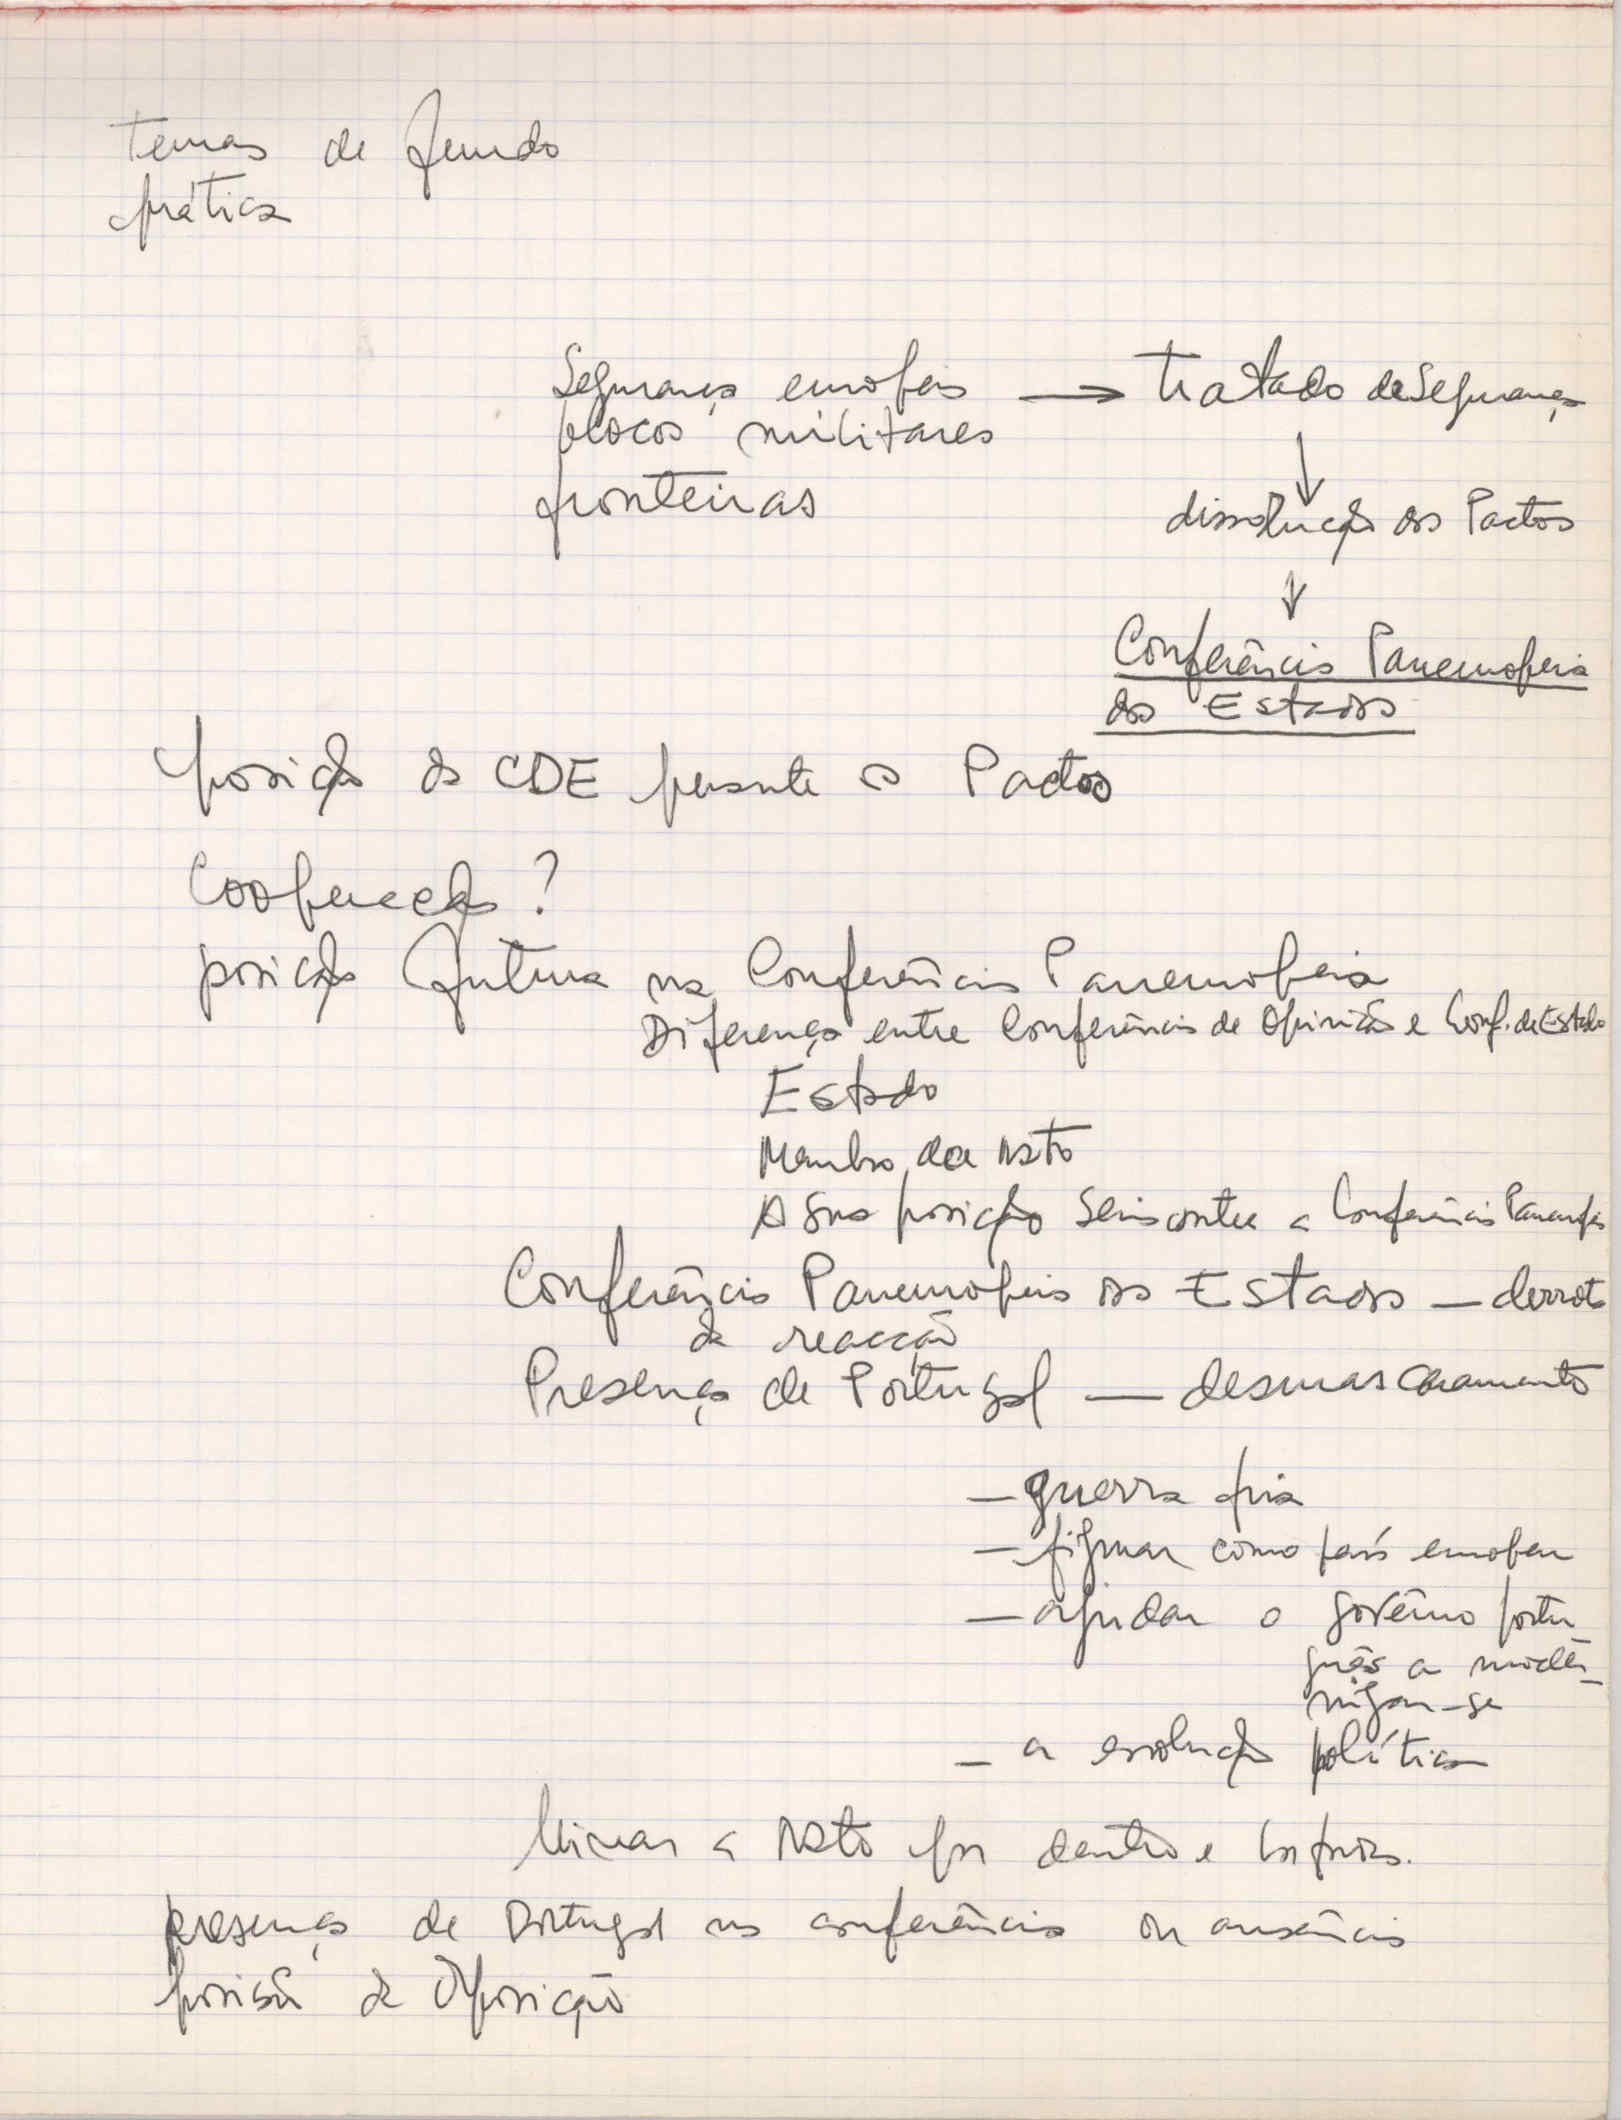 temas de fundo
prática
Segurança europeia → tratado de Segurança
blocos militares
fronteiras
↓
dissolução dos Pactos
↓
Conferência Paneuropeia
dos Estados
posição da CDE perante os Pactos
Cooperação?
posição futura na Conferência Paneuropeia
Diferença entre Conferência de Opinião e Conf. de Estado
Estado
Membro da Nato
A sua posição será contra a Conferência
Conferência Paneuropeia dos Estados — derrota
da reacção
Presença de Portugal — desmascaramento
- guerra fria
- figurar como país europeu
- ajudar o govêrno portu-
guês a moder-
nizar-se
- a evolução política
Minar a Nato por dentro e por fora.
presença de Portugal na conferência ou ausência
posição da Oposição